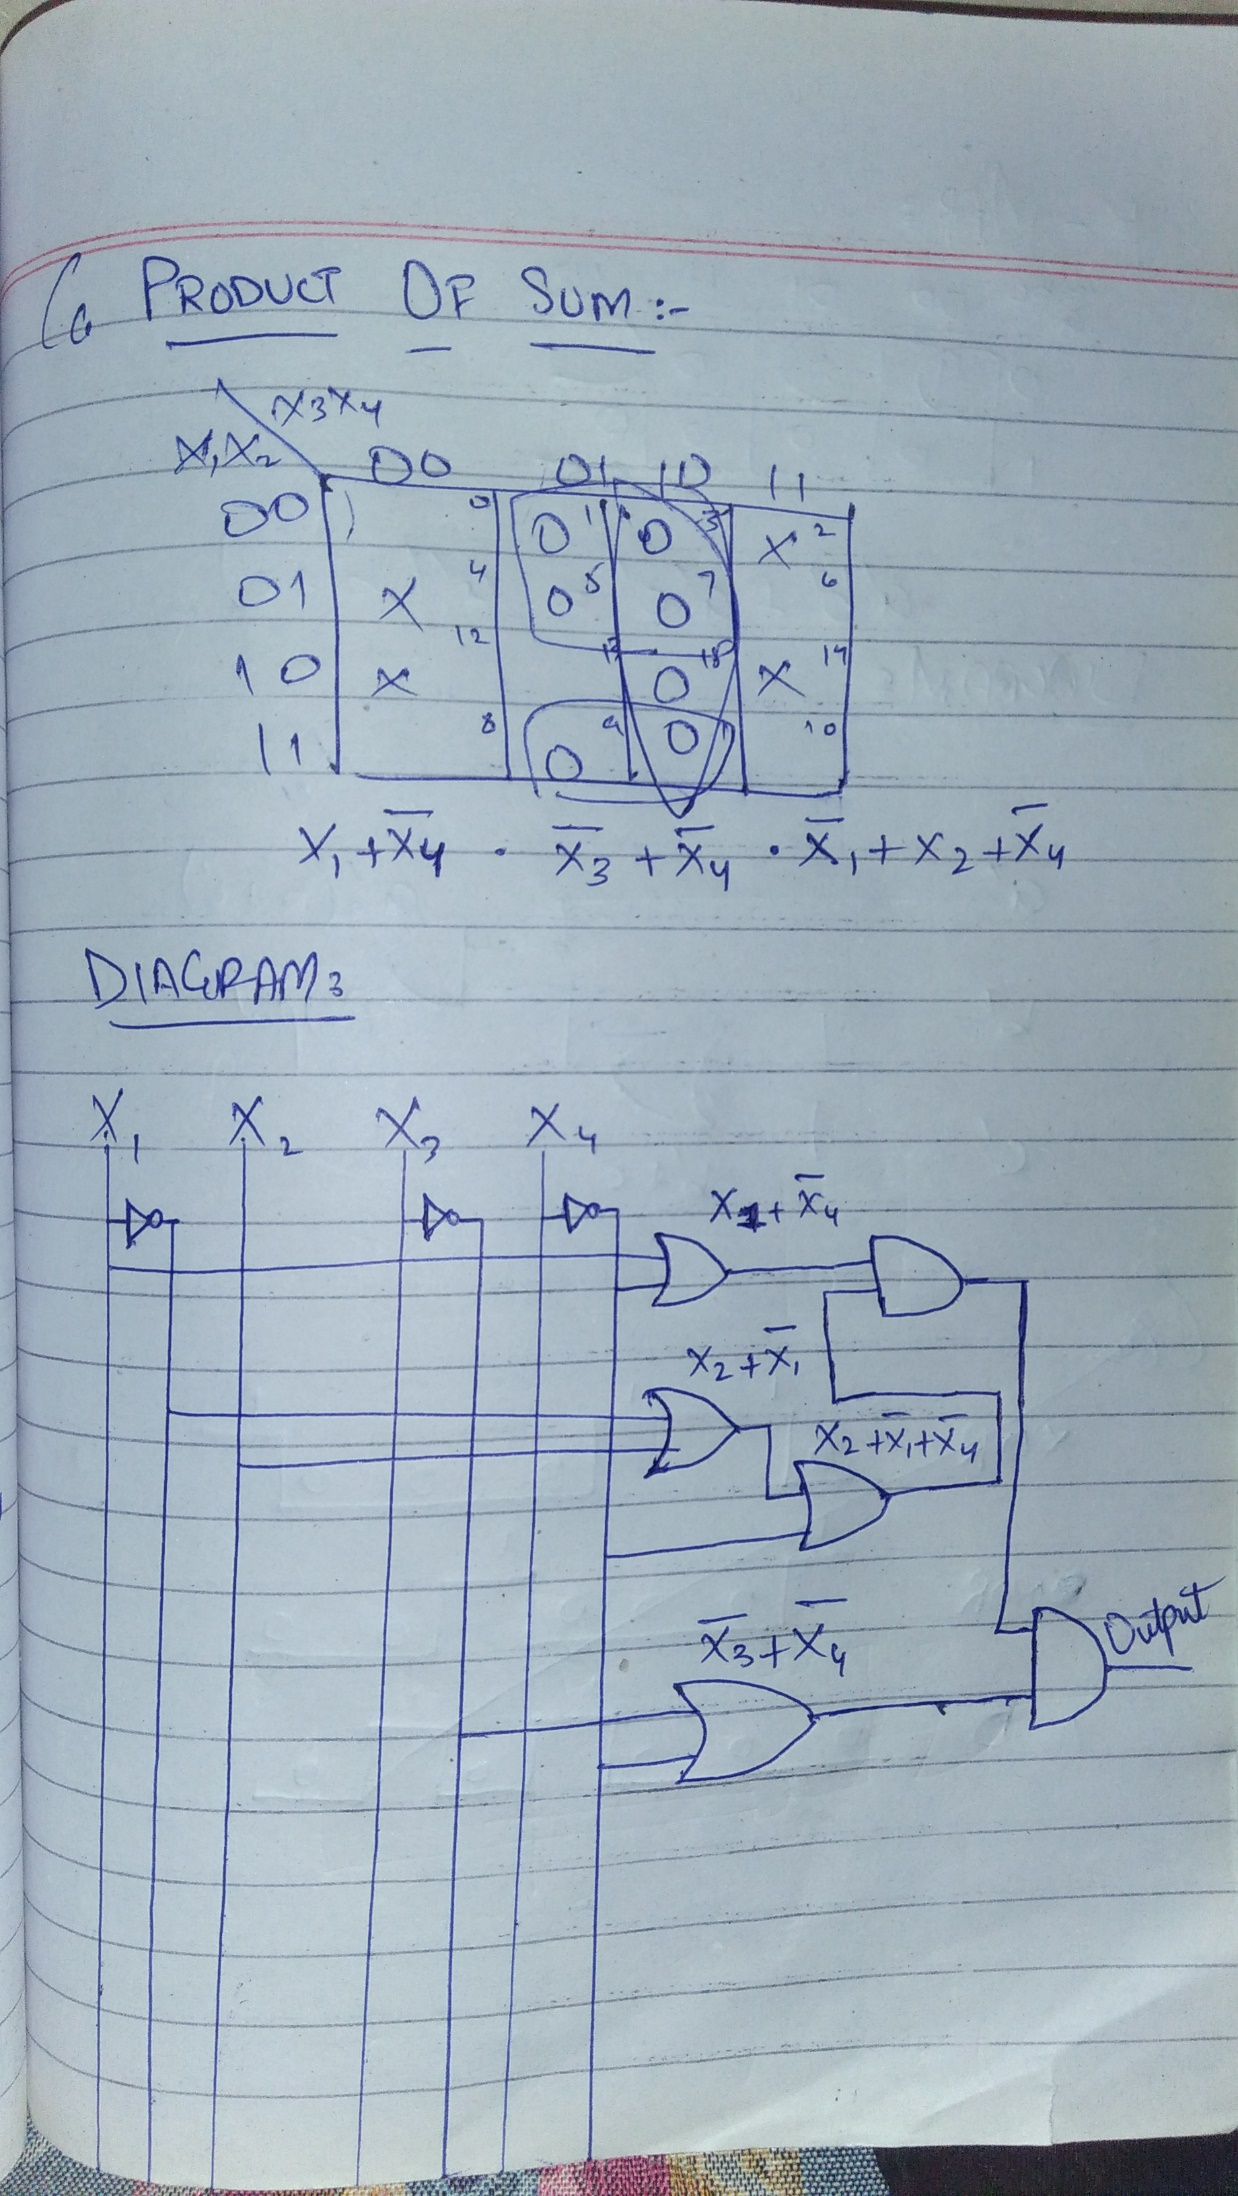 PRODUCT OF SUM:-
X3X4
X1X2 00 01 10 11
00 0 0 1 0 3 X 2
01 X 4 0 5 0 7 6
10 X 12 13 0 15 X 14
11 8 0 9 0 10
X1 + X̅4 · X̅3 + X̅4 · X̅1 + X2 + X̅4
DIAGRAM:
X1 X2 X3 X4
X1 + X̅4
X2 + X̅1
X2 + X̅1 + X̅4
X̅3 + X̅4
Output